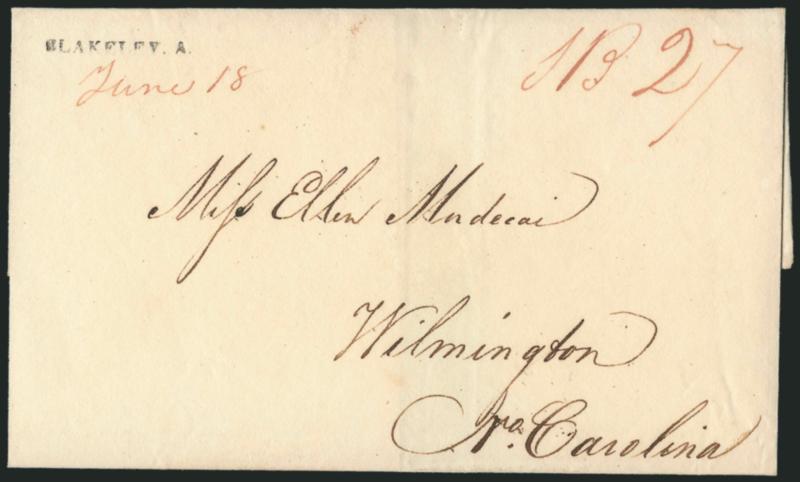 BLAKELEY. A.
June 18
SB 27
Miſs Ellen Mordecai
Wilmington
No. Carolina